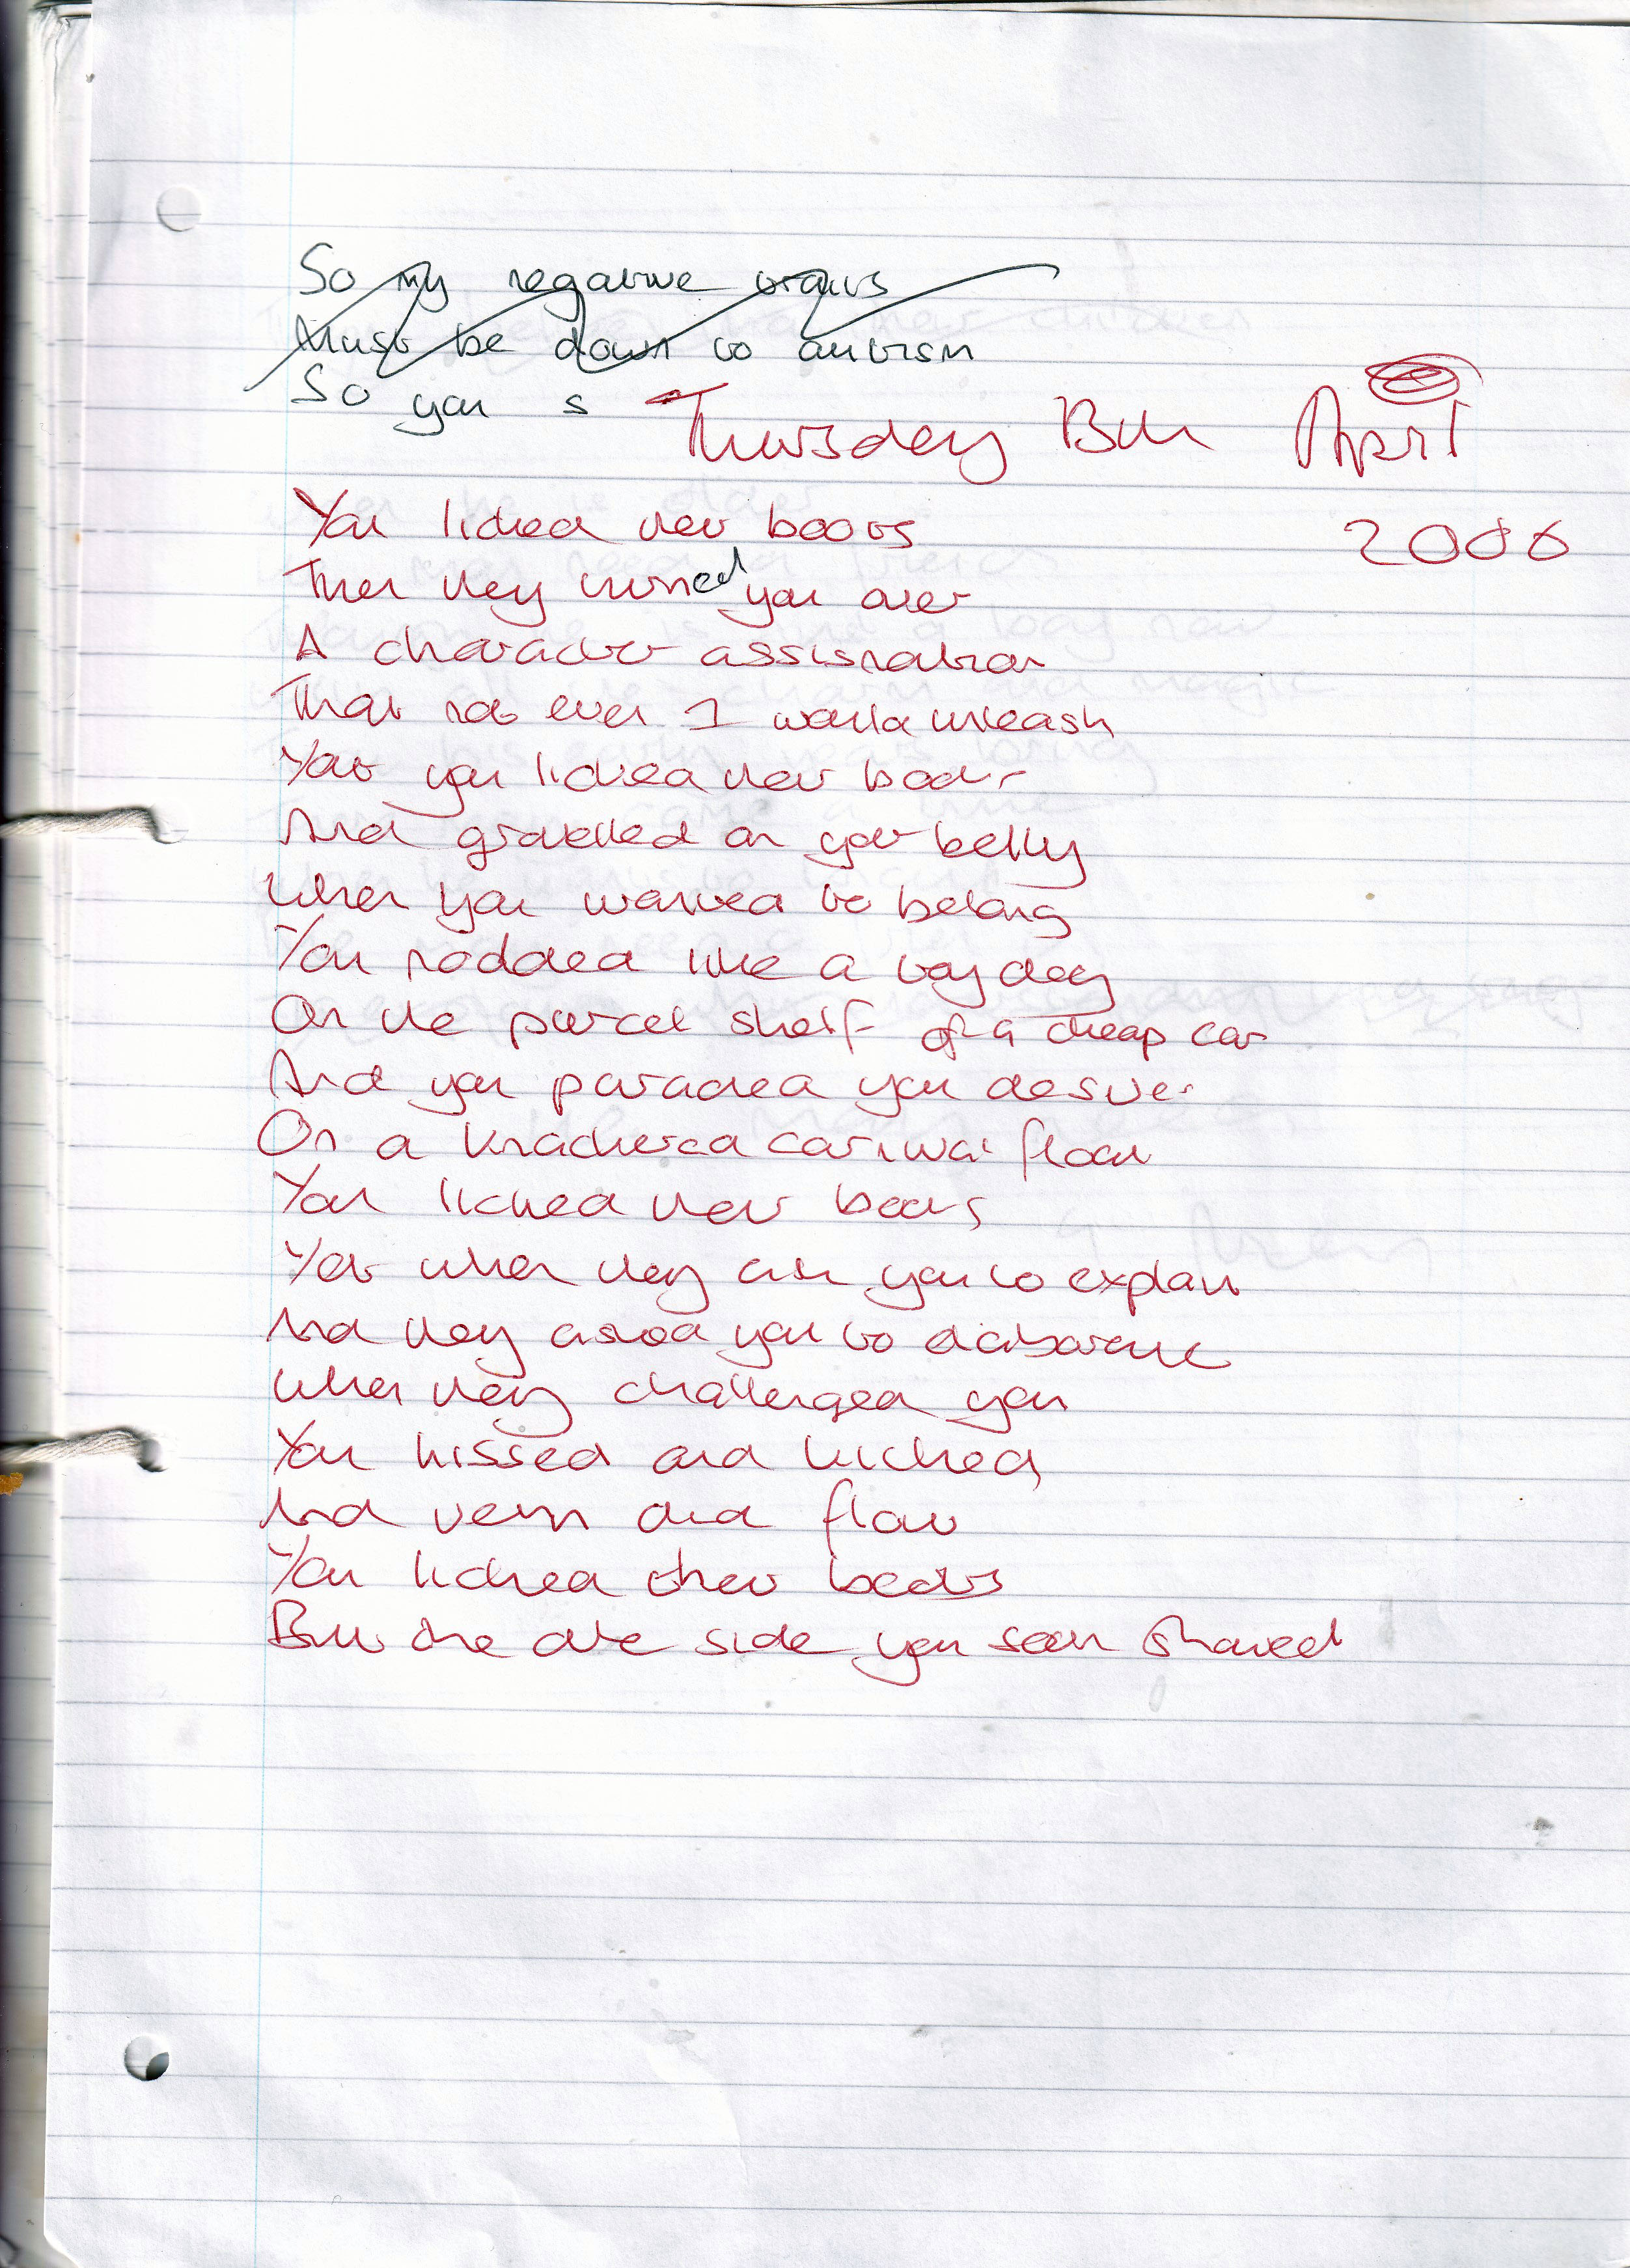 So my negative traits
Must be down to autism
So you s
Thursday 13th April
2006
You licked their boots
Then they turned you over
A character assisnation
That not even I would unleash
Yet you licked their boots
And grovelled on your belly
When you wanted to belong
You nodded like a toy dog
On the parcel shelf of a cheap car
And you paraded you
On a knackered floor
You licked their boots
Yet when they ask you to explain
And they asked you to elaborate
When they challenged you
You hissed and kicked
And and
You licked their boots
But the one side you soon showed